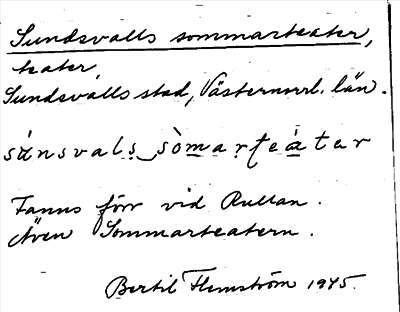 Sundsvalls sommarteater,
teater,
Sundsvalls stad, Västernorrl. län.
sánsvalṣ sòmaṛteátar
Fanns förr vid Rullan.
Även Sommarteatern.
Bertil Flemström 1975.